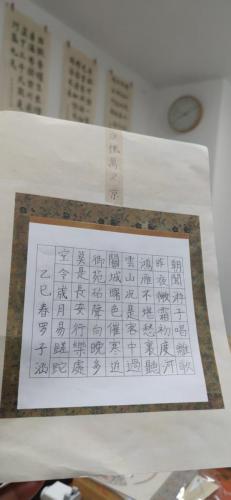 送魏萬之京
朝聞游子唱離歌
昨夜微霜初度河
鴻雁不堪愁裏聽
雲山况是客中過
關城曙色催寒近
御苑砧聲向晚多
莫是長安行樂處
空令歲月易蹉跎
乙巳春罗子涵